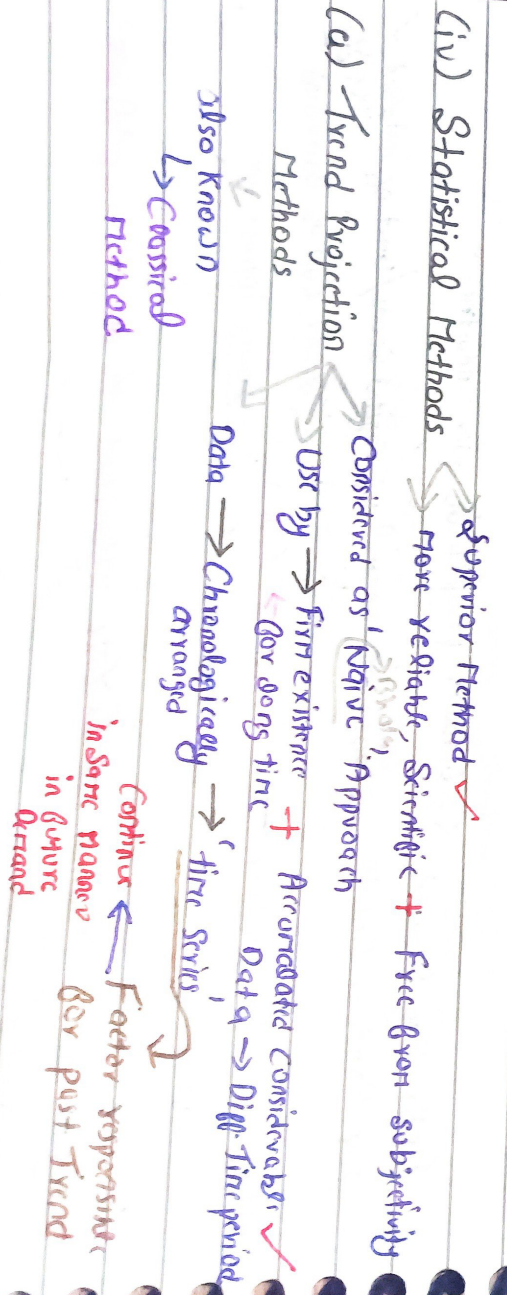 (iv) Statistical Methods → Superior Method ✓
→ More reliable, Scientific + Free from subjectivity
(a) Trend Projection Methods → Considered as 'Naive' Approach
→ Use by → Firm existence for long time + Accumulated considerable ✓
Data → Diff. Time period
also known
↳ Classical
Method
Data → Chronologically → 'time Series'
arranged
Factor responsible
for past Trend
← Continue
in Same manner
in future
Demand